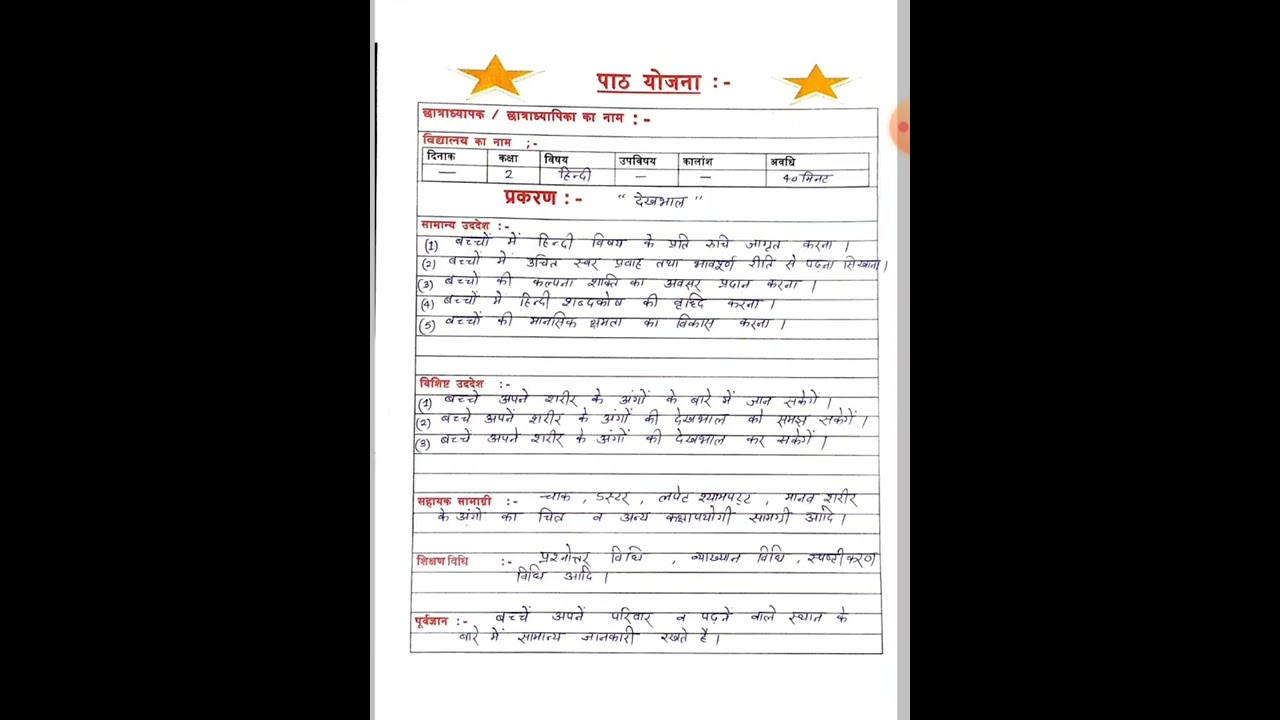 पाठ योजना :-
छात्राध्यापक / छात्राध्यापिका का नाम : -
विद्यालय का नाम ;-
दिनाक कक्षा विषय उपविषय कालांश अवधि
— 2 हिन्दी — — 40 मिनट
प्रकरण : - " देखभाल "
सामान्य उददेश :-
(1) बच्चों में हिन्दी विषय के प्रति रुचि जागृत करना ।
(2) बच्चों में उचित स्वर प्रवाह तथा भावपूर्ण रीति से पढना सिखाना।
(3) बच्चों की कल्पना शक्ति का अवसर प्रदान करना ।
(4) बच्चों में हिन्दी शब्दकोष की वृध्दि करना ।
(5) बच्चों की मानसिक क्षमता का विकास करना ।
विशिष्ट उददेश :-
(1) बच्चे अपने शरीर के अंगों के बारे में जान सकेगें ।
(2) बच्चे अपनें शरीर के अंगों की देखभाल को समझ सकेगें ।
(3) बच्चें अपने शरीर के अंगों की देखभाल कर सकेगें ।
सहायक सामाग्री :- चाक , डस्टर , लपेट श्यामपट्ट , मानव शरीर
के अंगो का चित्र व अन्य कक्षापयोगी सामग्री आदि ।
शिक्षण विधि :- प्रश्नोत्तर विधि , व्याख्यान विधि , स्पष्टीकरण
विधि आदि ।
पूर्वज्ञान :- बच्चें अपनें परिवार व पढ़नें वाले स्थान के
बारे में सामान्य जानकारी रखते है ।